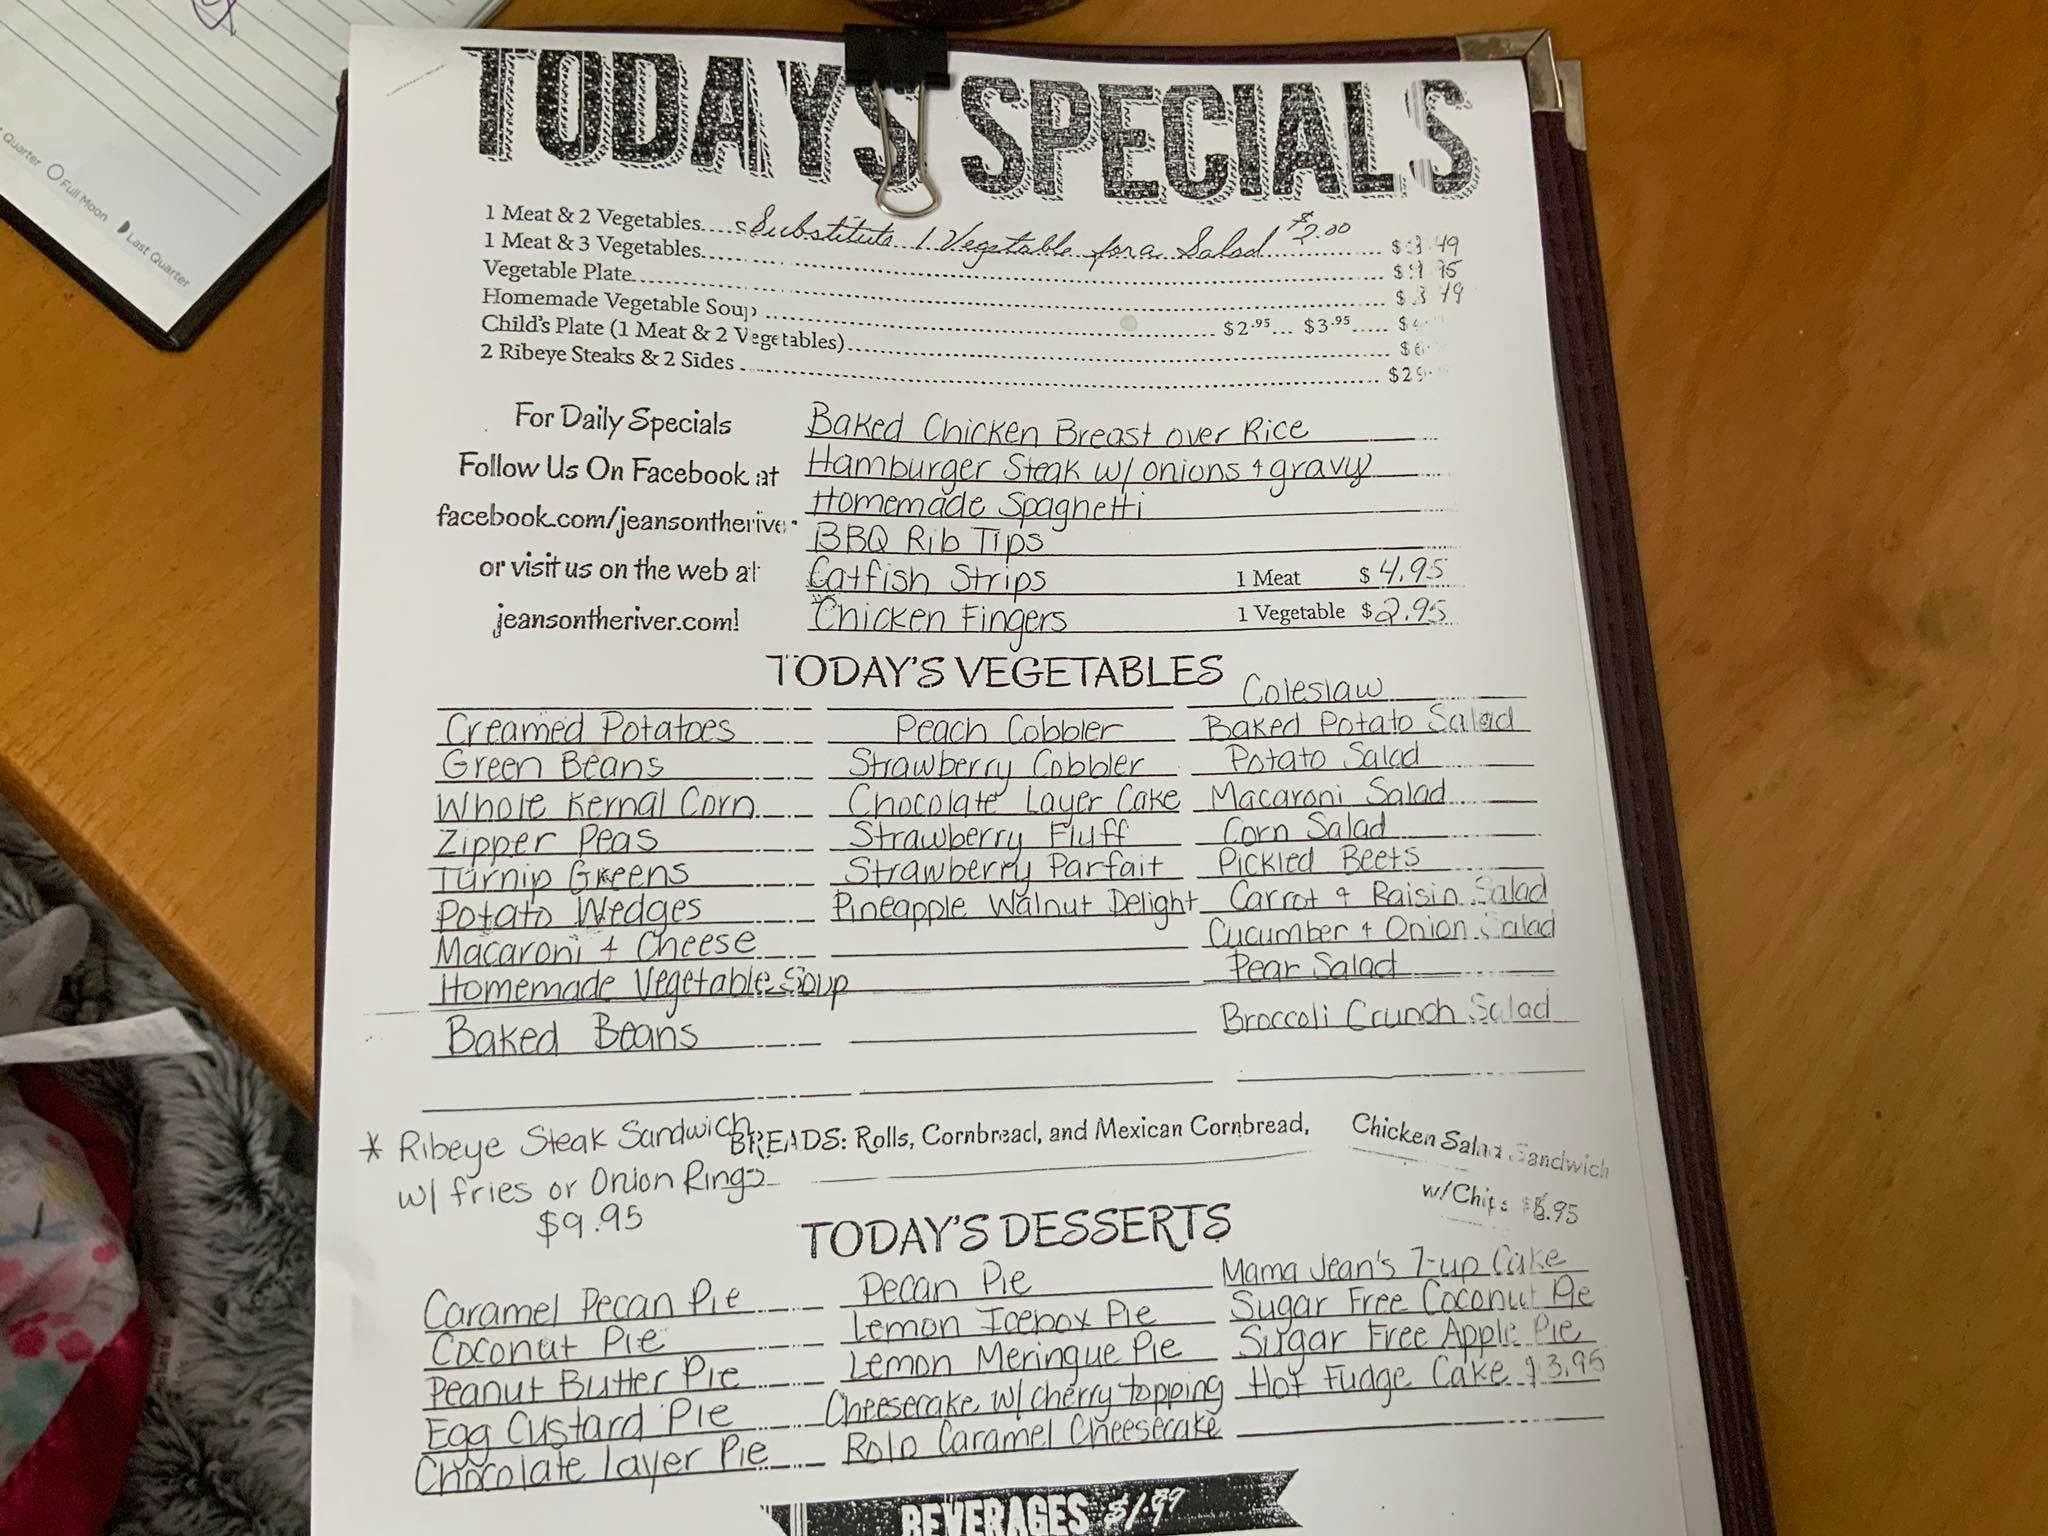 Quarter Full Moon Last Quarter
TODAYS SPECIALS
1 Meat & 2 Vegetables Substitute 1 Vegetable for a Salad $2.00
1 Meat & 3 Vegetables
Vegetable Plate
Homemade Vegetable Soup $2.95 $3.95
Child's Plate (1 Meat & 2 Vegetables)
2 Ribeye Steaks & 2 Sides
For Daily Specials
Follow Us On Facebook at
facebook.com/jeansontheriver
or visit us on the web at
jeansontheriver.com!
Baked Chicken Breast over Rice
Hamburger Steak w/ onions + gravy
Homemade Spaghetti
BBQ Rib Tips
Catfish Strips 1 Meat $4.95
Chicken Fingers 1 Vegetable $2.95
TODAY'S VEGETABLES
Creamed Potatoes
Green Beans
Whole Kernal Corn
Zipper Peas
Turnip Greens
Potato Wedges
Macaroni + Cheese
Homemade Vegetable Soup
Baked Beans
Peach Cobbler
Strawberry Cobbler
Chocolate Layer Cake
Strawberry Fluff
Strawberry Parfait
Pineapple Walnut Delight
Coleslaw
Baked Potato Salad
Potato Salad
Macaroni Salad
Corn Salad
Pickled Beets
Carrot + Raisin Salad
Cucumber + Onion Salad
Pear Salad
Broccoli Crunch Salad
* Ribeye Steak Sandwich
w/ fries or Onion Rings
$9.95
BREADS: Rolls, Cornbread, and Mexican Cornbread,
Chicken Salad Sandwich
w/Chips
TODAY'S DESSERTS
Caramel Pecan Pie
Coconut Pie
Peanut Butter Pie
Egg Custard Pie
Chocolate Layer Pie
Pecan Pie
Lemon Icebox Pie
Lemon Meringue Pie
Cheesecake w/ cherry topping
Rolo Caramel Cheesecake
Mama Jean's 7-up Cake
Sugar Free Coconut Pie
Sugar Free Apple Pie
Hot Fudge Cake $3.95
BEVERAGES $1.99